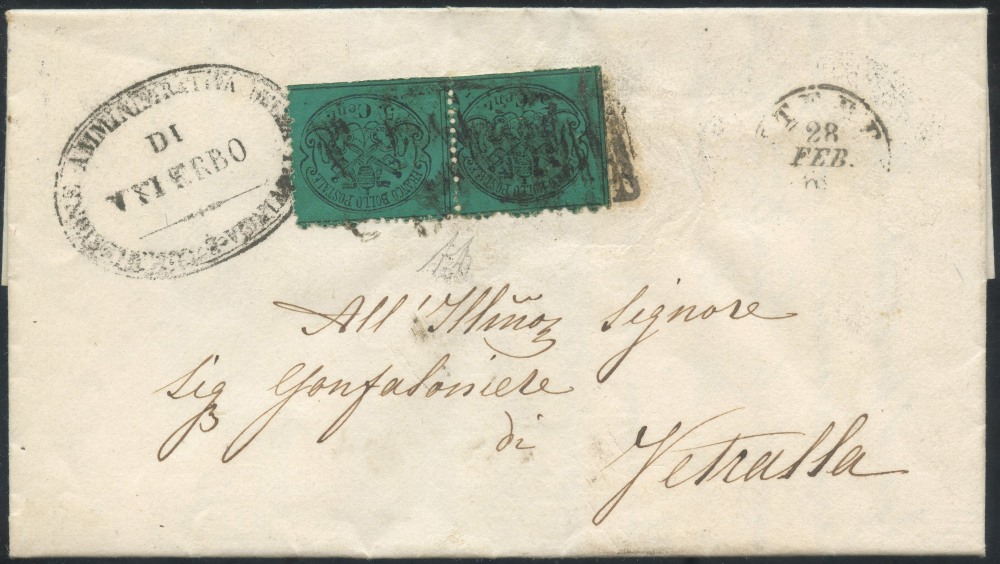 AMMINISTRATIVA
DI
VITERBO
5 Cent.
FRANCO BOLLO POSTALE
Cent.
FRANCO BOLLO POSTALE
28
FEB.
All' Illmo Signore
Sig Gonfaloniere
di
Vetralla